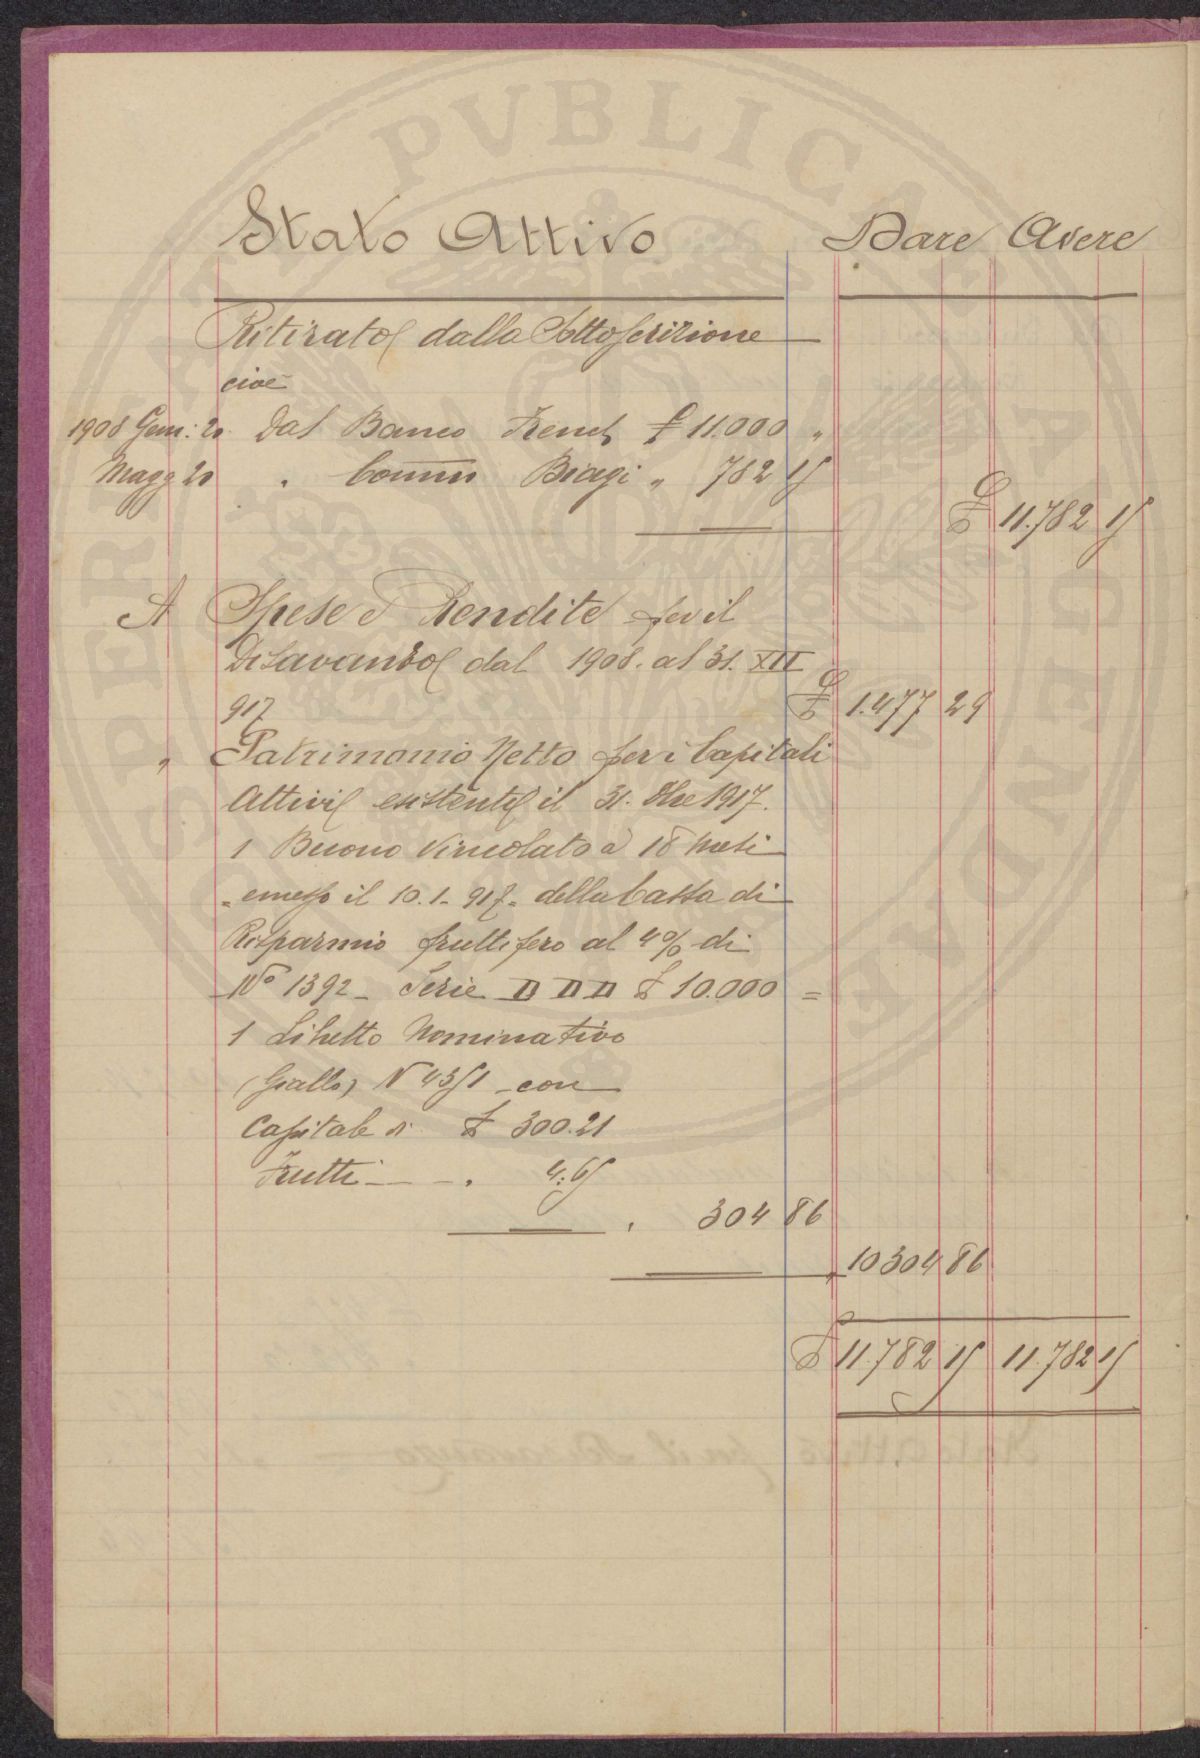 Stato Attivo Dare Avere
Ritirato dalla Sottoscrizione
cioè
1908 Genn: 20 Dal Banco French £ 11.000 "
Magg 20 " Comm Biagi " 782 15
£ 11.782 15
A Spese e Rendite per il
Disavanzo dal 1908. al 31. XII
917 £ 1.477 29
" Patrimonio Netto per i Capitali
Attivi esistenti il 31. Xbre 1917.
1 Buono Vincolato a 18 Mesi
emesso il 10.1.917. della Cassa di
Risparmio fruttifero al 4% di
No 1392 - Serie DDD £ 10.000 =
1 Libretto Nominativo
(Giallo) N 4351 con
Capitale di £ 300.21
Frutti - - " 4:65
" 304 86
" 10304 86
£ 11.782 15 11.782 15
PERITATI PVBLICAE